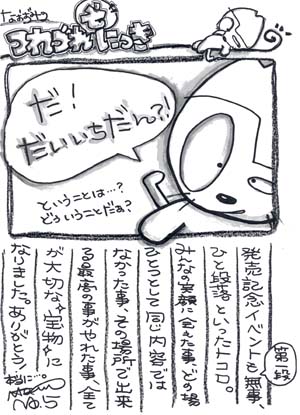 つれづれぞにっき
だ!
だいいちだん?!
ということは…?
どういうことだぁ?
第一段
発売記念イベントも無事
ひと段落といったトコロ。
みんなの笑顔に会えた事、どの場
ひとつとして同じ内容では
なかった事、その場所で出来
る最高の事がやれた事、全て
が大切な宝物に
なりました。ありがとう!
本当に…。
No.5